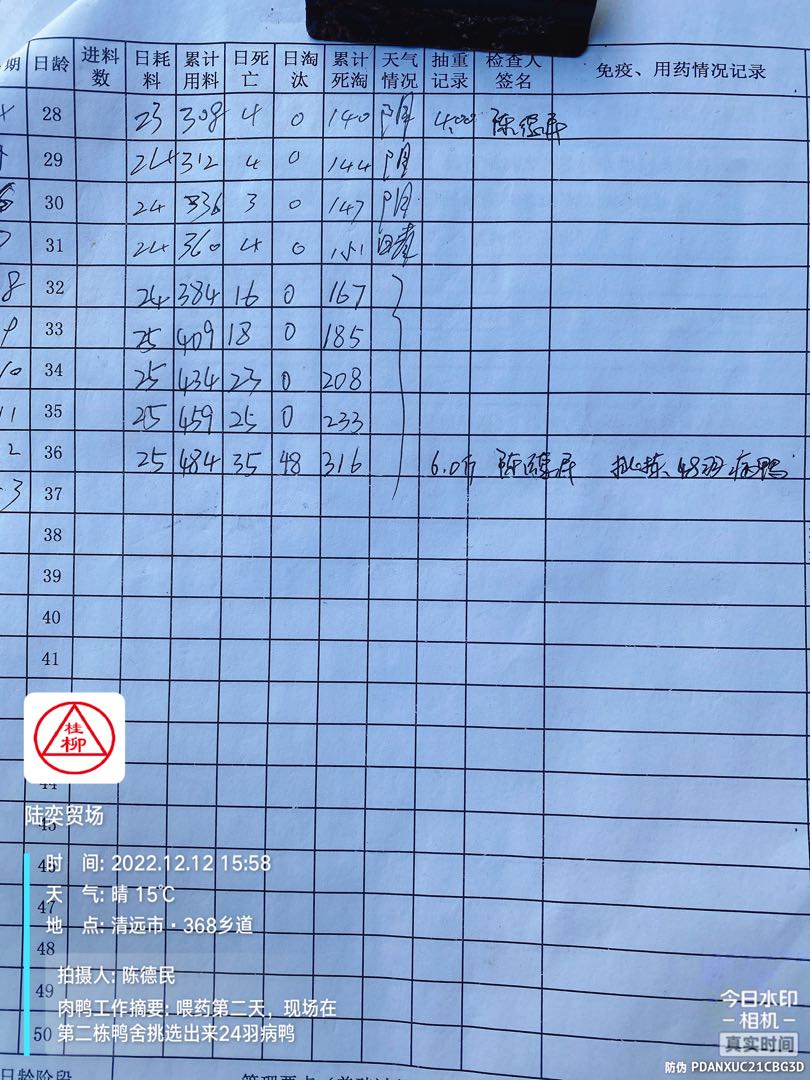 期 日龄 进料数 日耗料 累计用料 日死亡 日淘汰 累计死淘 天气情况 抽重记录 检查人签名 免疫、用药情况记录
28 23 308 4 0 140 阴 4.00
29 24 312 4 0 144 阴
30 24 336 3 0 147 阴
7 31 24 360 4 0 151 晴
8 32 24 384 16 0 167
9 33 25 409 18 0 185
10 34 25 434 23 0 208
11 35 25 459 25 0 233
2 36 25 484 35 48 316 6.0斤 48羽病鸭
3 37
38
39
40
41
桂柳
44
陆奕贸场
45
时 间: 2022.12.12 15:58
46
天 气: 晴 15℃
47
地 点: 清远市·368乡道
48
拍摄人: 陈德民
49
肉鸭工作摘要: 喂药第二天，现场在
第二栋鸭舍挑选出来24羽病鸭
50
今日水印
相机
真实时间
防伪 PDANXUC21CBG3D
日龄阶段